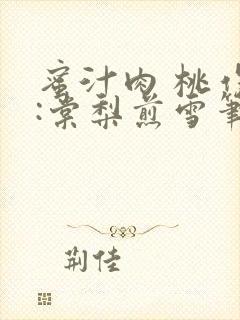 蜜汁肉桃作
:棠梨煎雪筆
荆佳